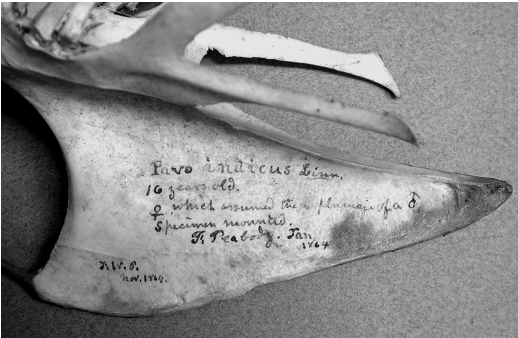 Pavo indicus Linn.
16 years old.
♀ which assumed the plumage of a ♂
Specimen mounted.
F. Peabody. Jan.
1864
F.W.P.
Nov. 1864.